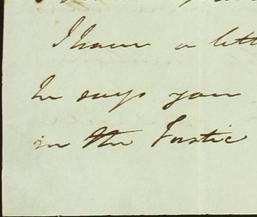 I have a lett
he says you
in the Justic